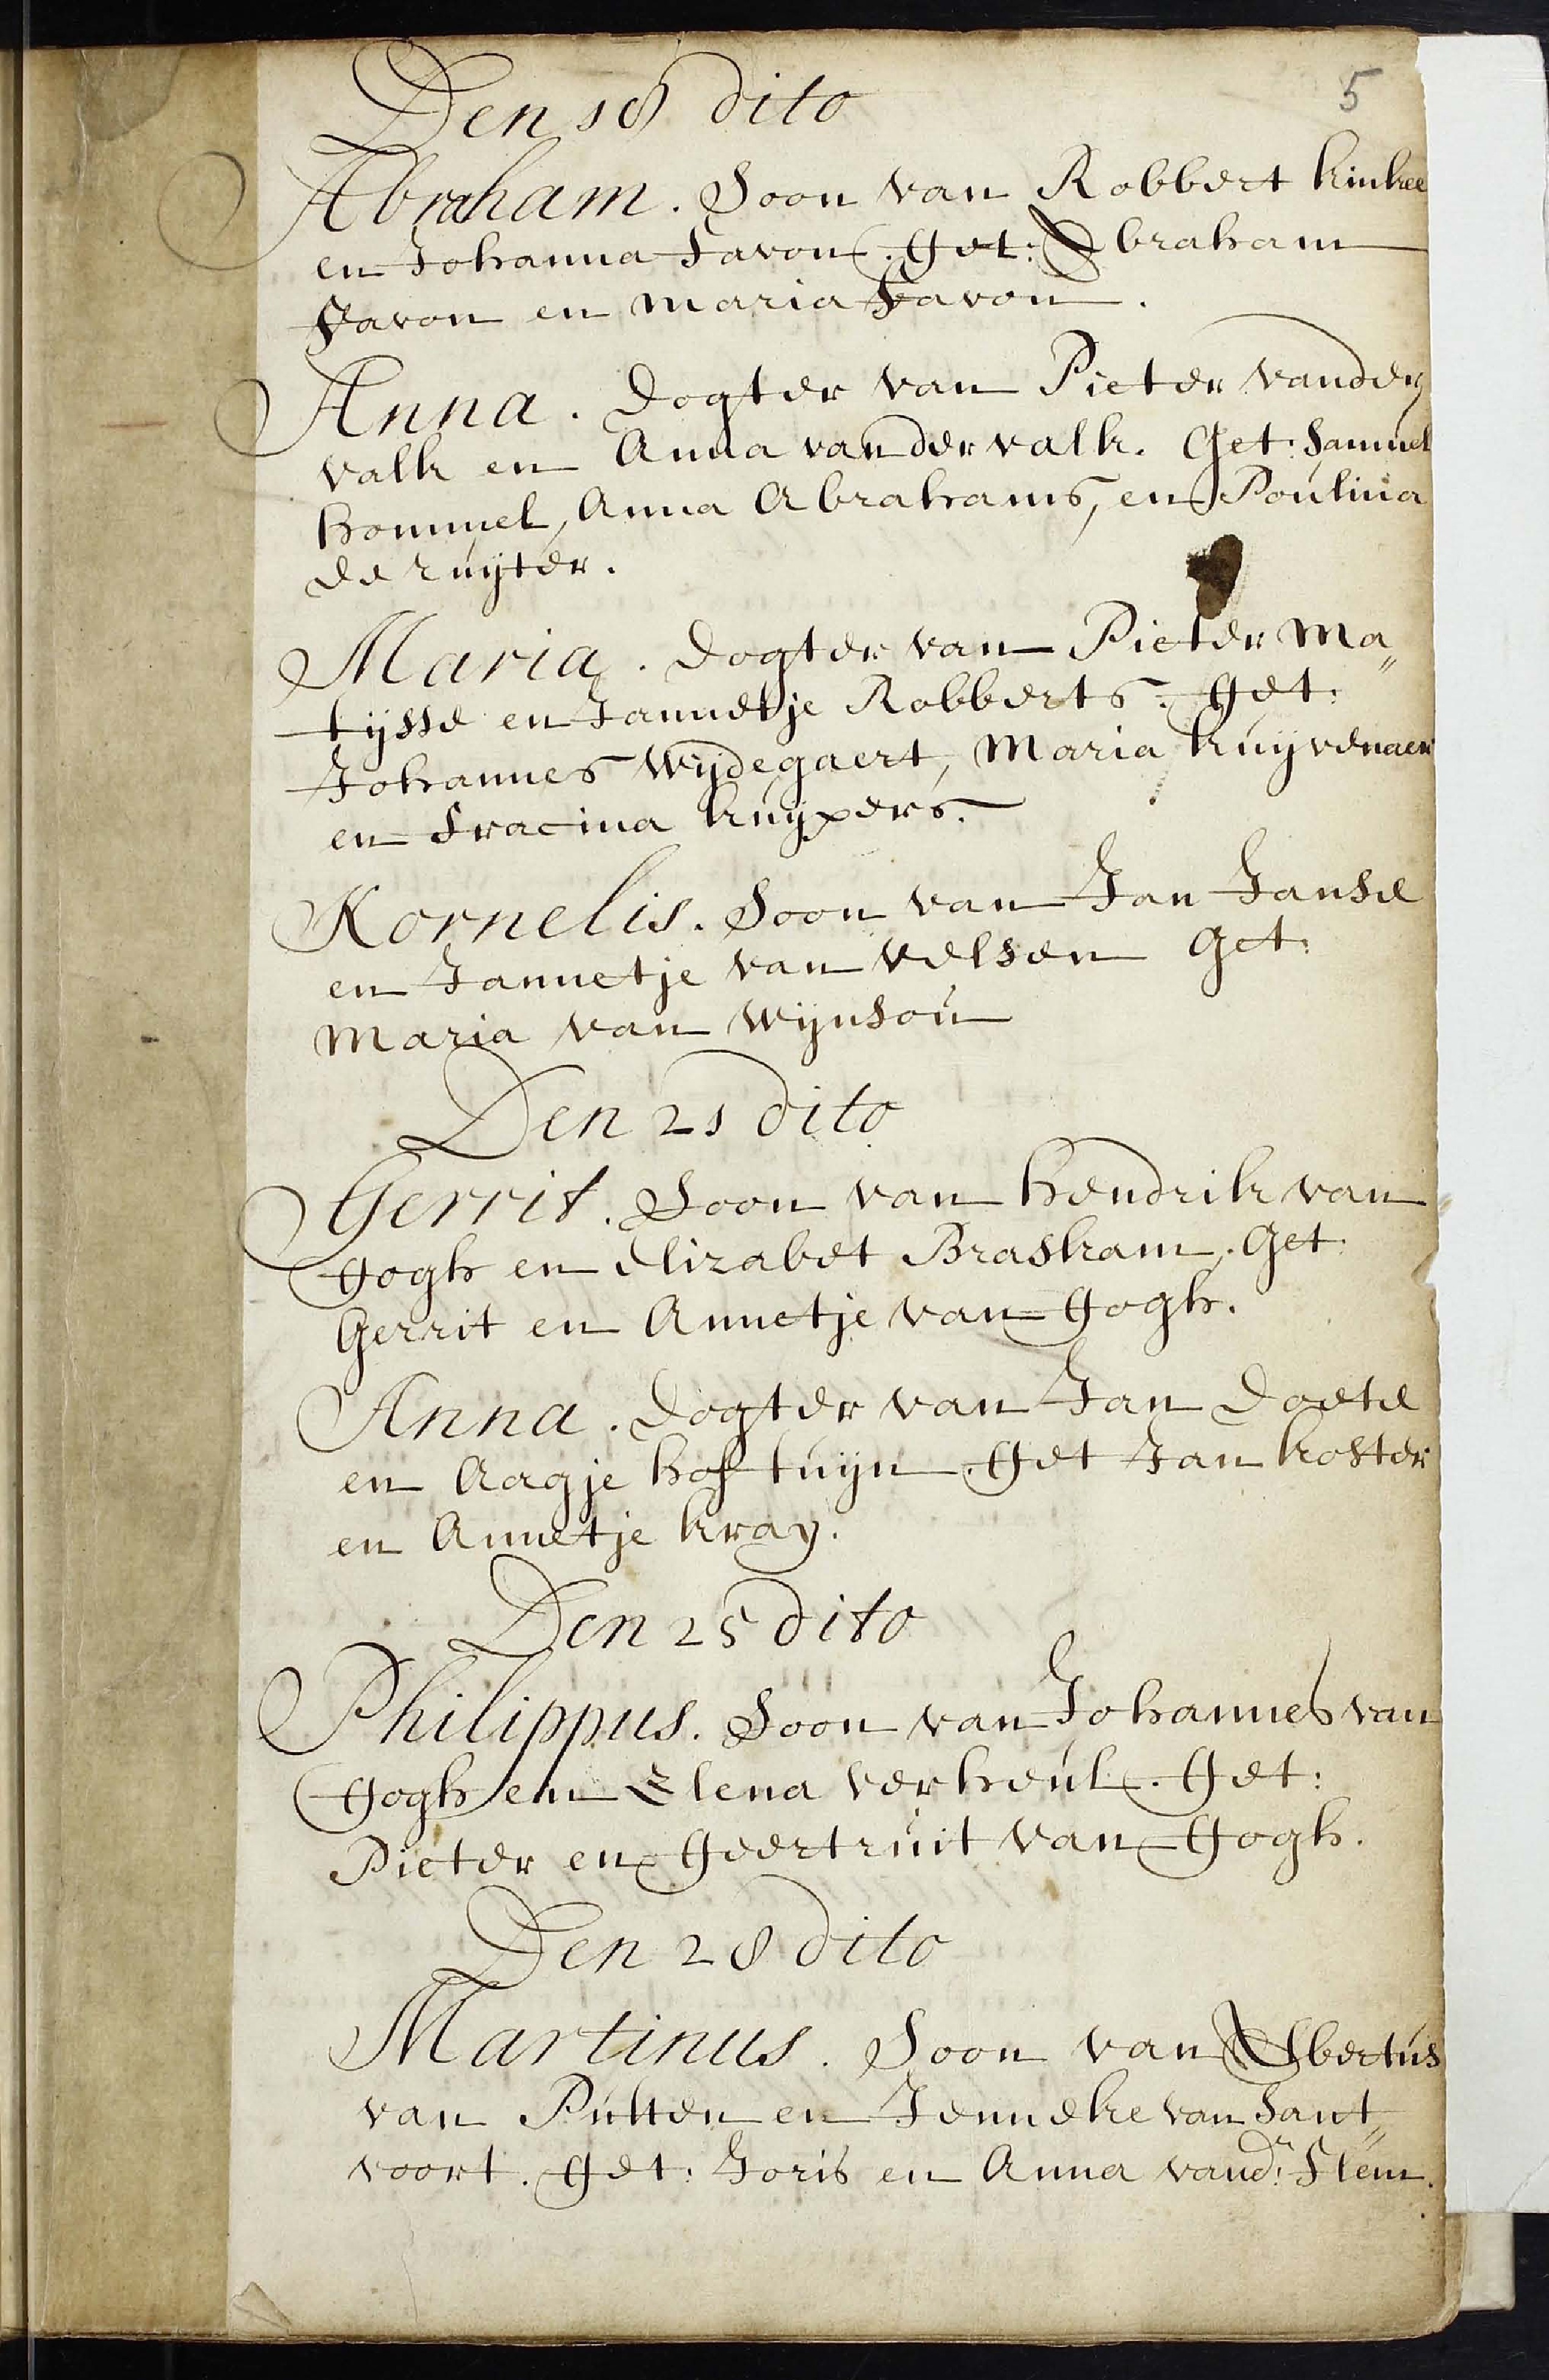 5
Den 18 dito
Abraham. Soon van Robbert kinkee
en Johanna Favon. get: Abraham
Favon en Maria Favon.
Anna. Dogter van Pieter vander
valk en Anna van der valk. Get: Samuel
hommel, Anna Abrahams, en Poulina
de ruijter.
Maria. Dogter van Pieter Ma„
tijsse en Jannetje Robberts. get:
Johannes Wijdegaert, Maria kuijvenaer
en Fracina kuijpers.
Kornelis. Soon van Jan Janse
en Jannetje van velsen Get:
Maria van Wijnsou
Den 21 dito
Gerrit. Soon van hendrik van
gogh en Elizabet Braskam. Get:
Gerrit en Annetje van gogh.
Anna. Dogter van Jan Doete
en Aagje hoftuijn. get Jan koster
en Annetje kray.
Den 25 dito
Philippus. Soon van Johannes van
gogh en Elena verheul. get:
Pieter en geertruit van gogh.
Den 28 dito
Martinus. Soon van Ebertus
van Putten en Jenneke van Sant„
voort. get: Joris en Anna vandr: Flem.